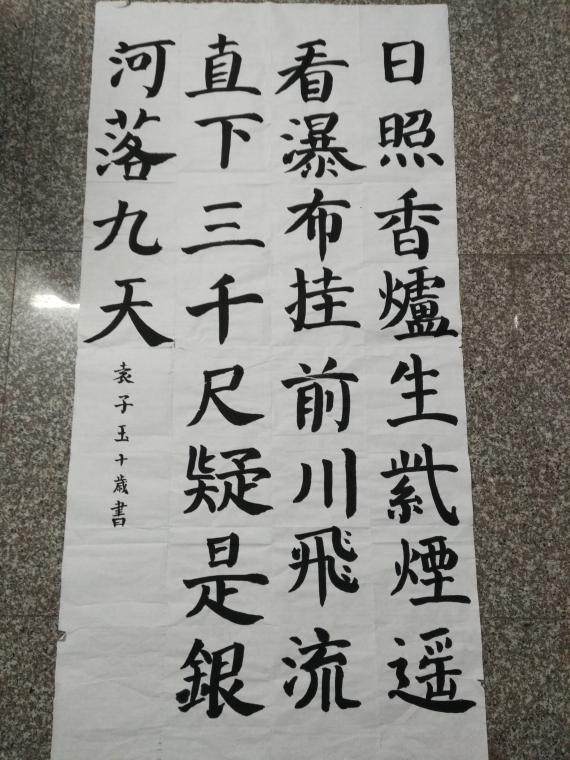 日照香爐生紫煙遥
看瀑布挂前川飛流
直下三千尺疑是銀
河落九天
袁子玉十歲書